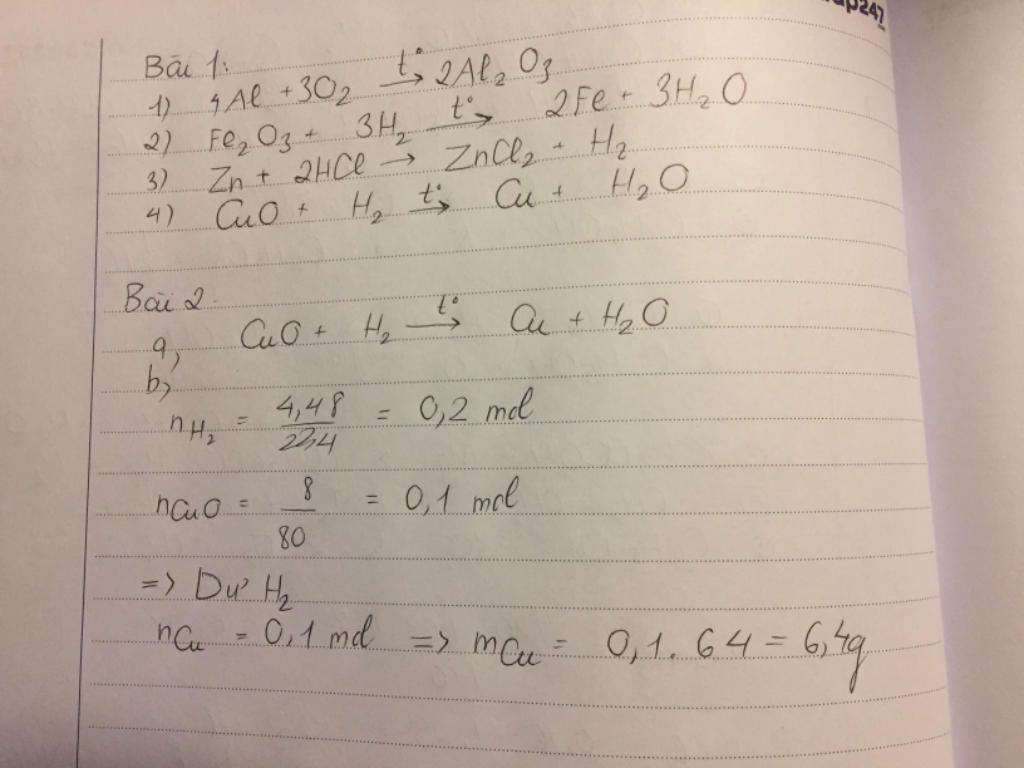 ap247
Bài 1:
1) 4Al + 3O₂ t°→ 2Al₂O₃
2) Fe₂O₃ + 3H₂ t°→ 2Fe + 3H₂O
3) Zn + 2HCl → ZnCl₂ + H₂
4) CuO + H₂ t°→ Cu + H₂O
Bài 2.
a, CuO + H₂ t°→ Cu + H₂O
b,
nH₂ = 4,48/22,4 = 0,2 mol
nCuO = 8/80 = 0,1 mol
=> Dư H₂
nCu = 0,1 mol => mCu = 0,1.64 = 6,4g